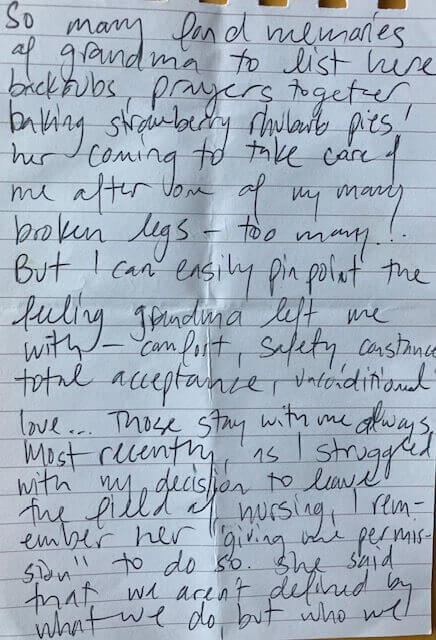 So many fond memories
of grandma to list here
backrubs, prayers together,
baking strawberry rhubarb pies,
her coming to take care of
me after one of my many
broken legs – too many!!
But I can easily pinpoint the
feeling grandma left me
with – comfort, safety, constance
total acceptance, unconditional
love... Those stay with me always.
Most recently, as I struggled
with my decision to leave
the field of nursing, I rem-
ember her "giving me permis-
sion" to do so. She said
that we aren't defined by
what we do but who we